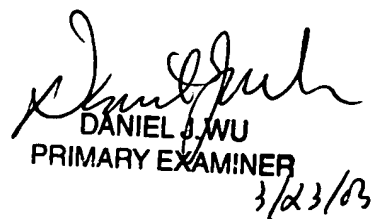 DANIEL J. WU
PRIMARY EXAMINER
3/23/03